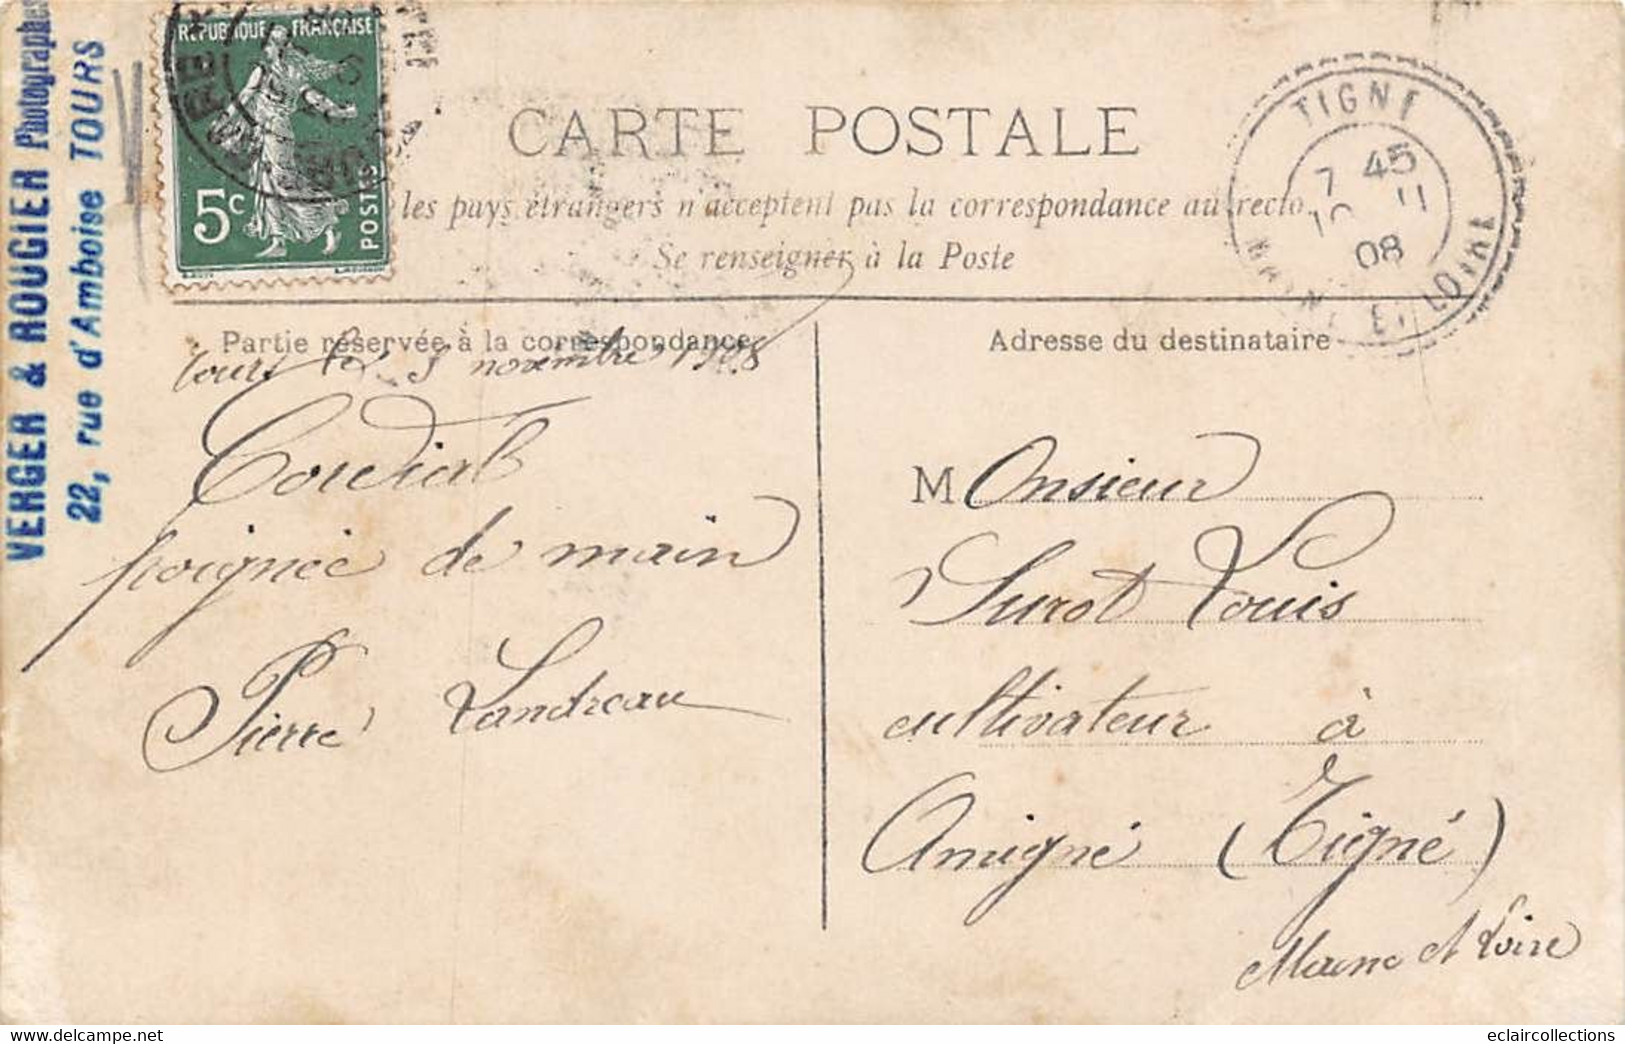 VERGER & ROUGIER Photographes
22, rue d'Amboise TOURS
RÉPUBLIQUE FRANÇAISE
5c
POSTES
CARTE POSTALE
les pays étrangers n'acceptent pas la correspondance au recto.
Se renseigner à la Poste
TIGNE
7 45
10 11
08
MAINE ET LOIRE
Partie réservée à la correspondance
Adresse du destinataire
Tours le 9 novembre 1908
Cordial
poignée de main
Pierre Landreau
M Onsieur
Surot Louis
cultivateur à
Amigné (Tigné)
Maine et Loire
www.delcampe.net
eclaircollections